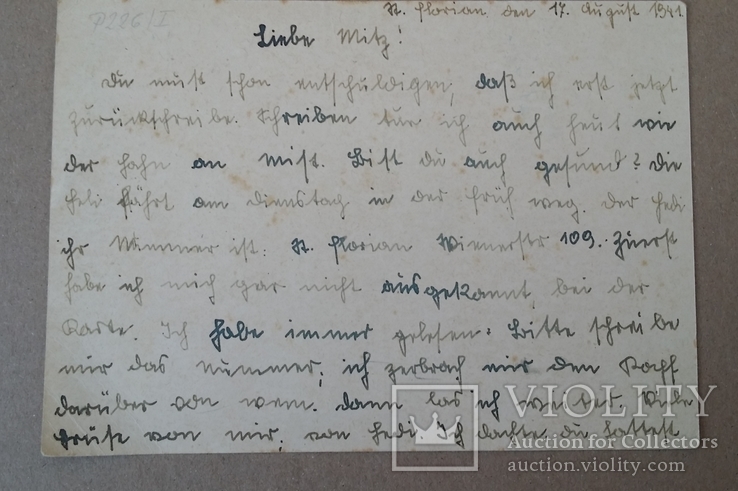 P226/I
St. Florian den 17. August 1941
Liebe Mitz!
Du must schon entschuldigen, daß ich erst jetzt
zurückschreibe. Schreiben tue ich auch heut wie
der hahn an mist. Bist du auch gesund? Die
Heli fährt am dienstag in der früh weg. der Hedi
ihr Nummer ist: St. Florian Wienerstr 109. Zuerst
habe ich mich gar nicht ausgekannt bei der
Karte. Ich habe immer gelesen: Bitte schreibe
mir das nummer, ich zerbrach mir den Kopf
darüber von wem. dann las ich weiter. Viele
Grüße von mir, von Hedi. Ich dachte du hattest
VIOLITY
Auction for Collectors
auction.violity.com